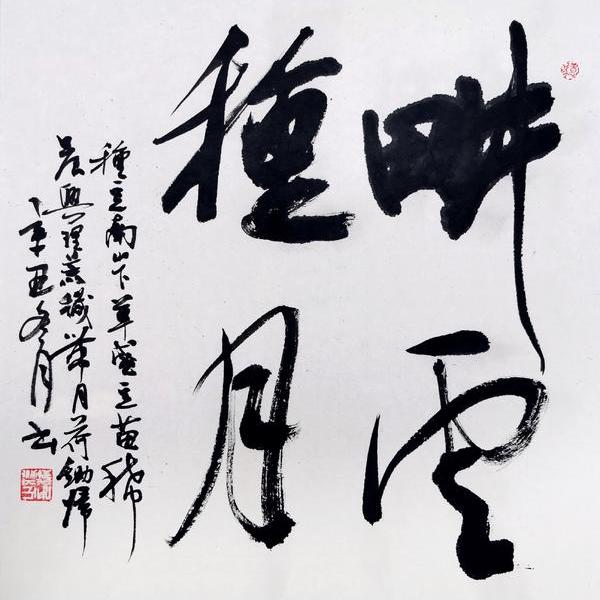 畊雲
種月
種豆南山下草盛豆苗稀
晨興理荒穢帶月荷鋤歸
辛丑冬月书